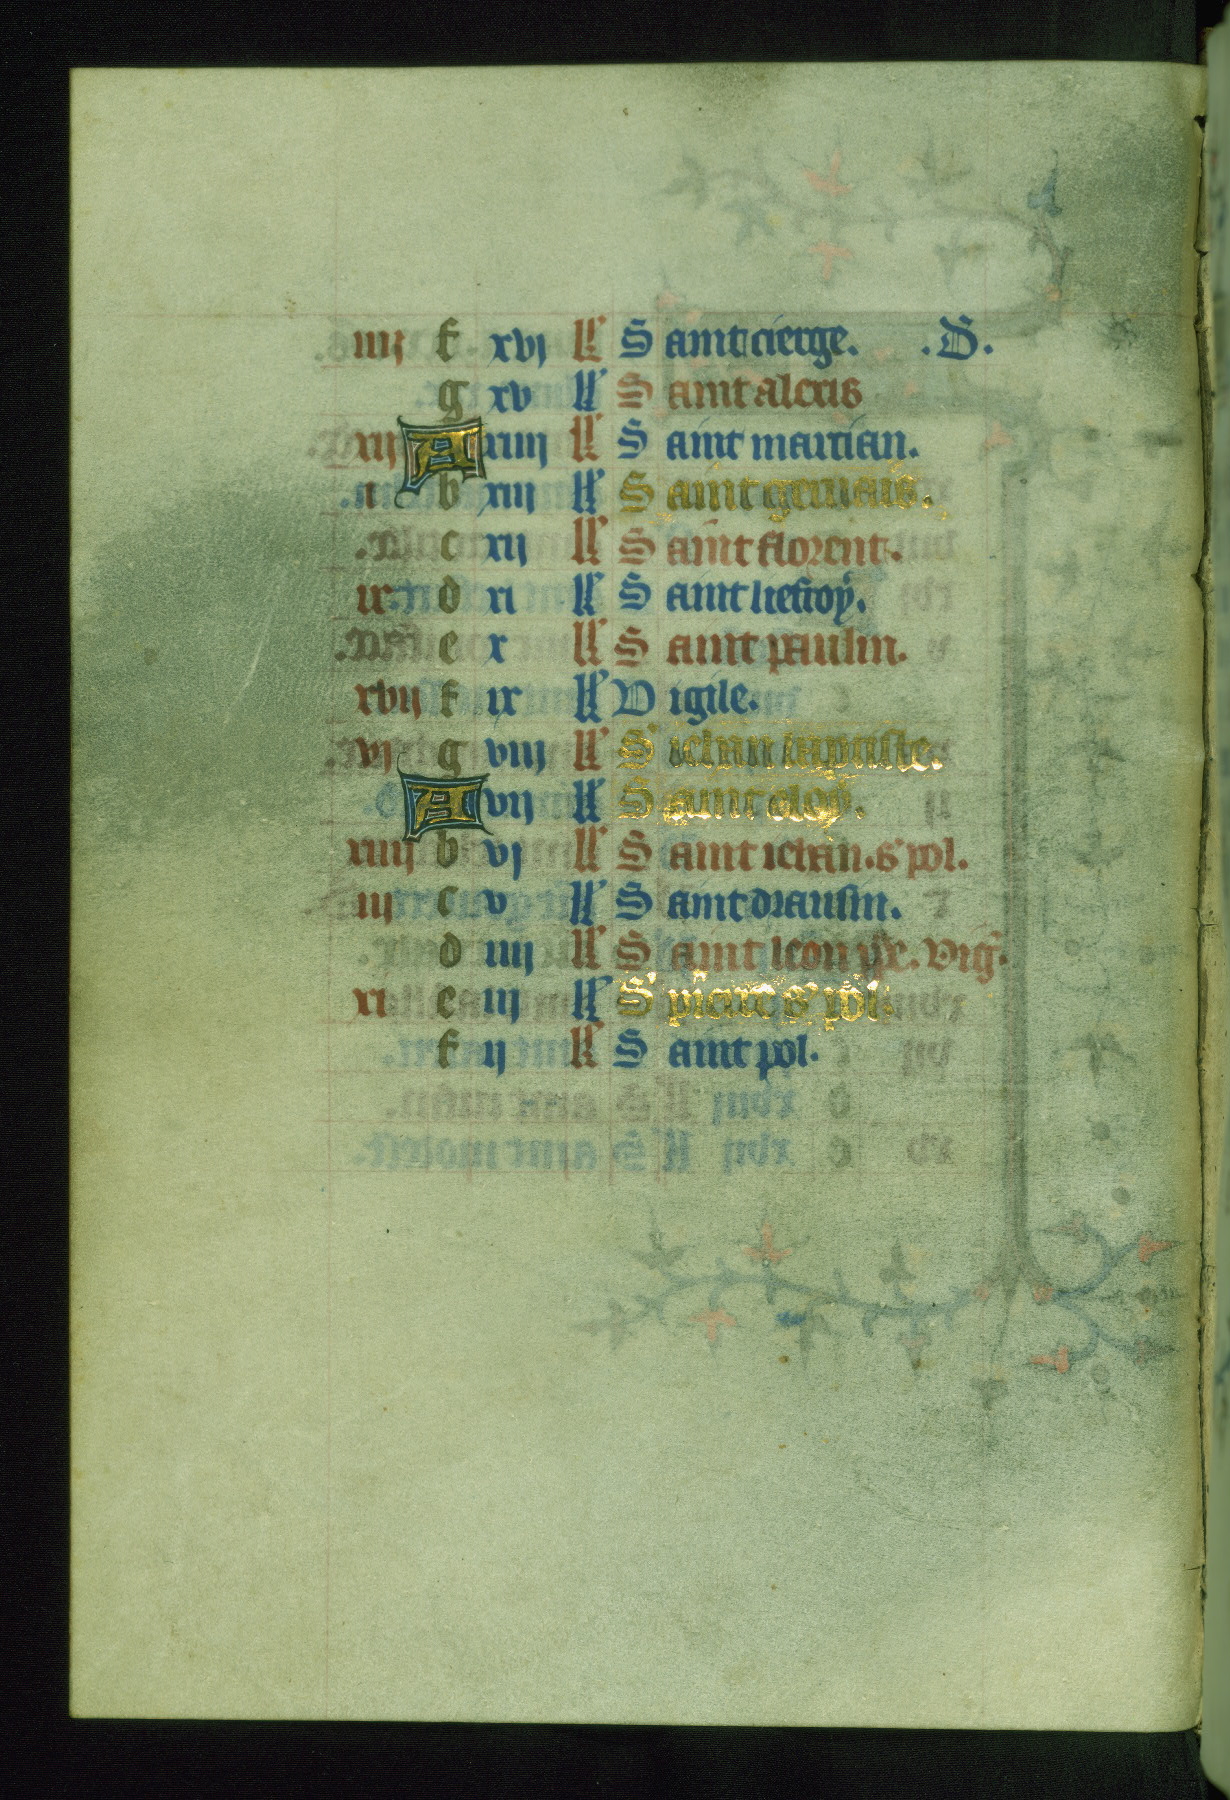 iiij f xvj kl Saint cierge. .D.
g xv kl Saint alexis
xij A xiiij kl Saint martian.
i b xiij kl Saint geruais.
c xij kl Saint florent.
ix d xi kl Saint liefroy.
e x kl Saint paulin.
xvij f ix kl Vigile.
vj g viij kl S' iehan baptiste.
A vij kl Saint eloy.
xiiij b vj kl Saint iehan. & pol.
iij c v kl Saint drausin.
d iiij kl Saint leon ppe. vig'.
xi e iij kl S' pierre & pol.
f ij kl Saint pol.